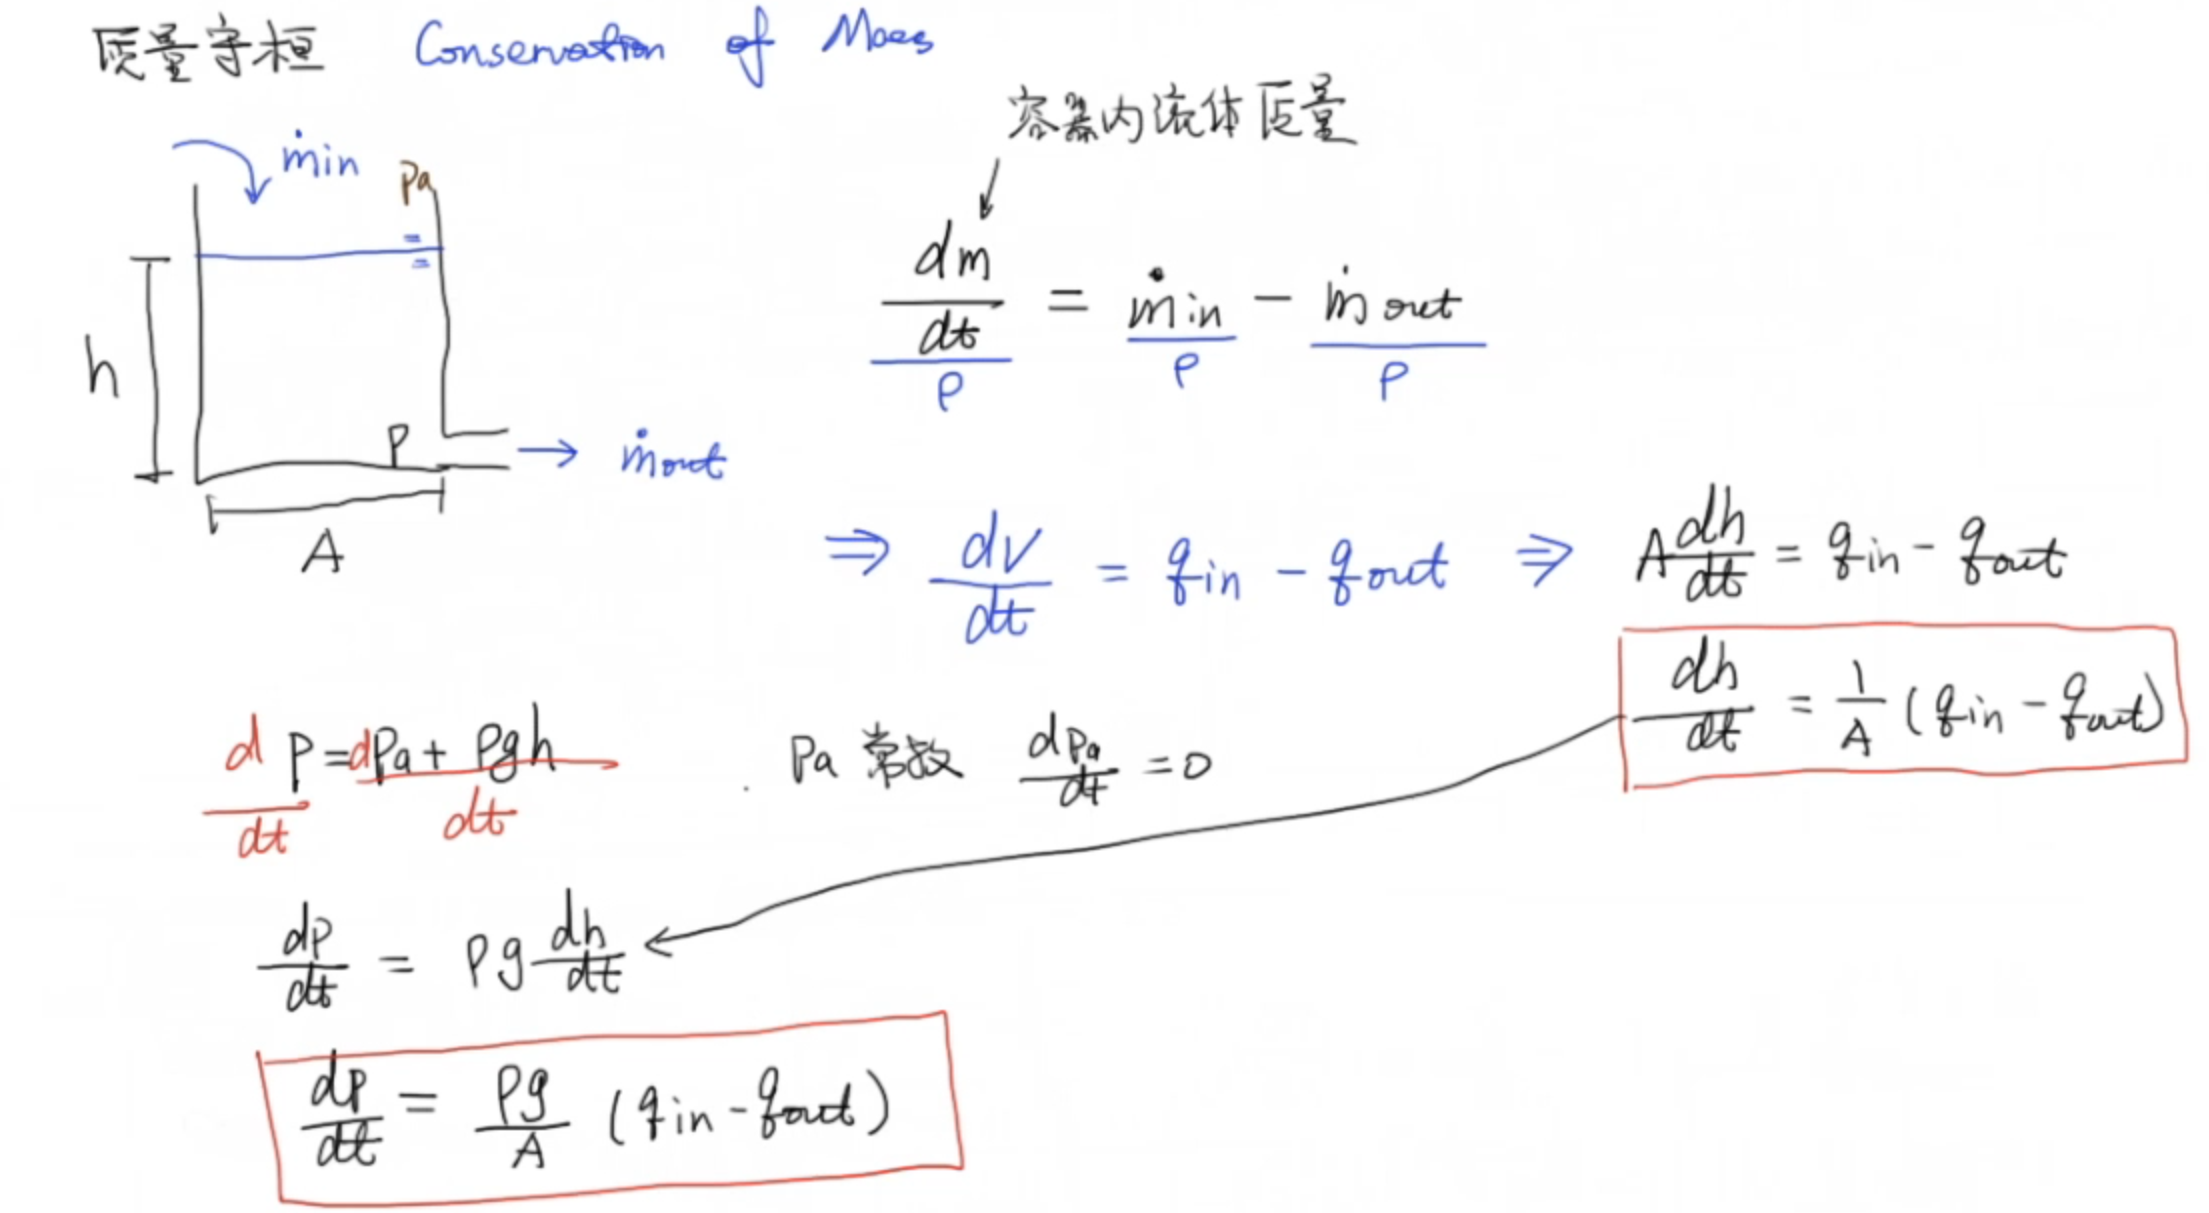 质量守桓 Conservation of Mass
容器内流体质量
ṁin
Pa
dm/dt / ρ = ṁin / ρ - ṁout / ρ
h
P
ṁout
A
⇒ dV/dt = qin - qout ⇒ A dh/dt = qin - qout
dh/dt = 1/A (qin - qout)
d P / dt = d Pa + ρgh / dt
Pa 常数 dPa/dt = 0
dP/dt = ρg dh/dt
dP/dt = ρg/A (qin - qout)